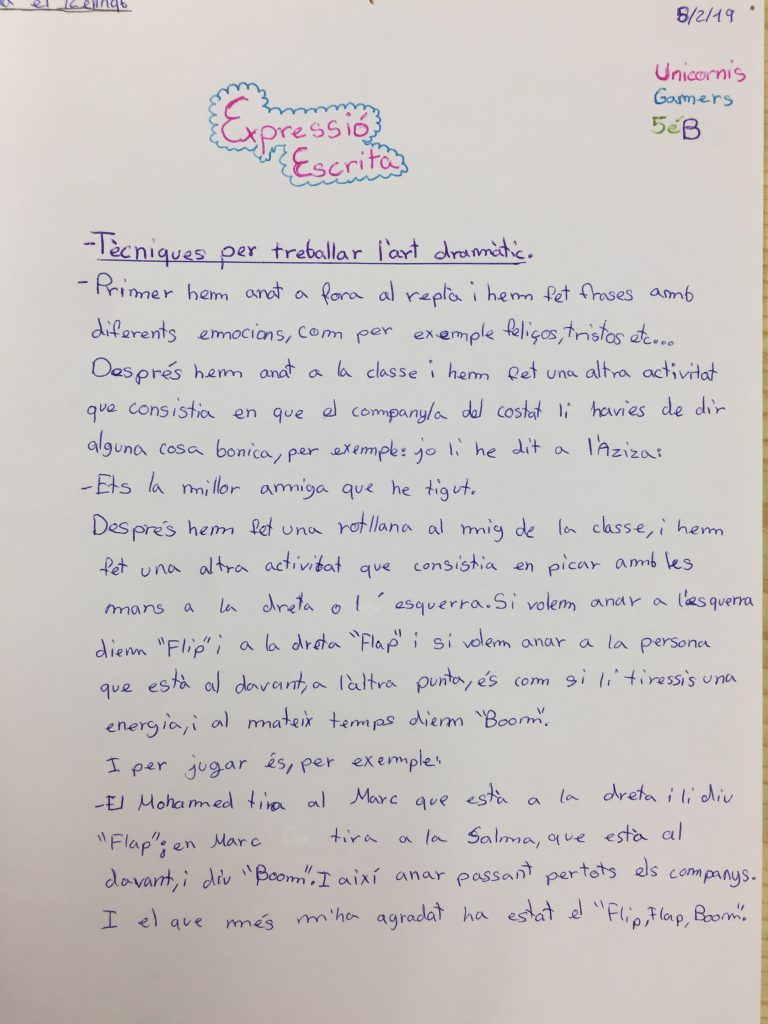 8/2/19
Unicornis
Gamers
5è B
Expressió
Escrita
-Tècniques per treballar l'art dramàtic.
-Primer hem anat a fora al replà i hem fet frases amb
diferents emocions, com per exemple feliços, tristos etc...
Després hem anat a la classe i hem fet una altra activitat
que consistia en que el company/a del costat li havies de dir
alguna cosa bonica, per exemple: jo li he dit a l'Aziza:
-Ets la millor amiga que he tigut.
Després hem fet una rotllana al mig de la classe, i hem
fet una altra activitat que consistia en picar amb les
mans a la dreta o l'esquerra. Si volem anar a l'esquerra
diem "Flip" i a la dreta "Flap" i si volem anar a la persona
que està al davant, a l'altra punta, és com si li tiressis una
energia, i al mateix temps diem "Boom".
I per jugar és, per exemple:
-El Mohamed tira al Marc que està a la dreta i li diu
"Flap"; en Marc tira a la Salma, que està al
davant, i diu "Boom". I així anar passant per tots els companys.
I el que més m'ha agradat ha estat el "Flip, Flap, Boom".